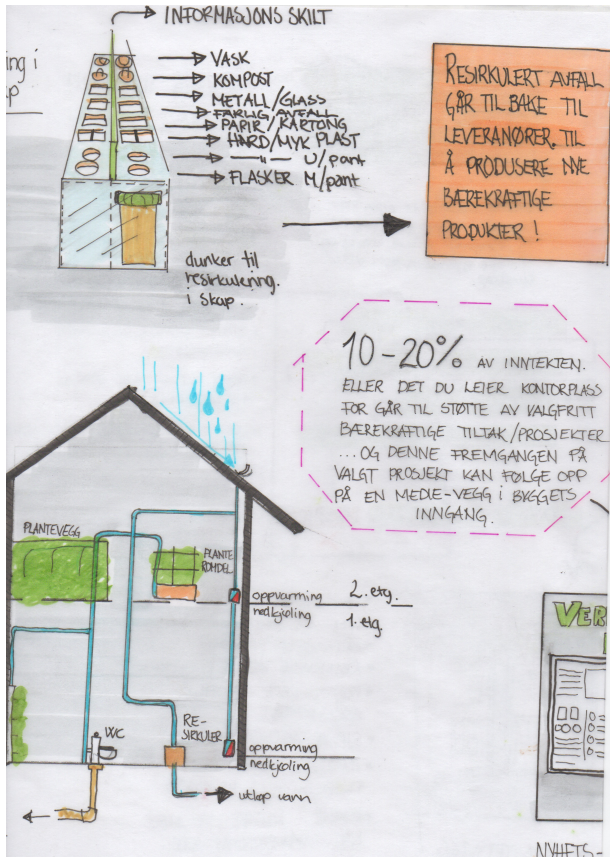 INFORMASJONS SKILT
ng i
p
VASK
KOMPOST
METALL/GLASS
FARLIG AVFALL
PAPIR/KARTONG
HARD/MYK PLAST
— " — U/pant
FLASKER M/pant
dunker til
resirkulering.
i skap.
RESIRKULERT AVFALL
GÅR TIL BAKE TIL
LEVERANØRER. TIL
Å PRODUSERE NYE
BÆREKRAFTIGE
PRODUKTER!
10-20% AV INNTEKTEN.
ELLER DET DU LEIER KONTORPLASS
FOR GÅR TIL STØTTE AV VALGFRITT
BÆREKRAFTIGE TILTAK/PROSJEKTER
...OG DENNE FREMGANGEN PÅ
VALGT PROSJEKT KAN FØLGE OPP
PÅ EN MEDIE-VEGG I BYGGETS
INNGANG.
PLANTEVEGG
PLANTE
ROMDEL
oppvarming
nedkjøling
2. etg.
1. etg.
WC
RE-
SIRKULER
oppvarming
nedkjøling
utløp vann
VER
NYHETS-